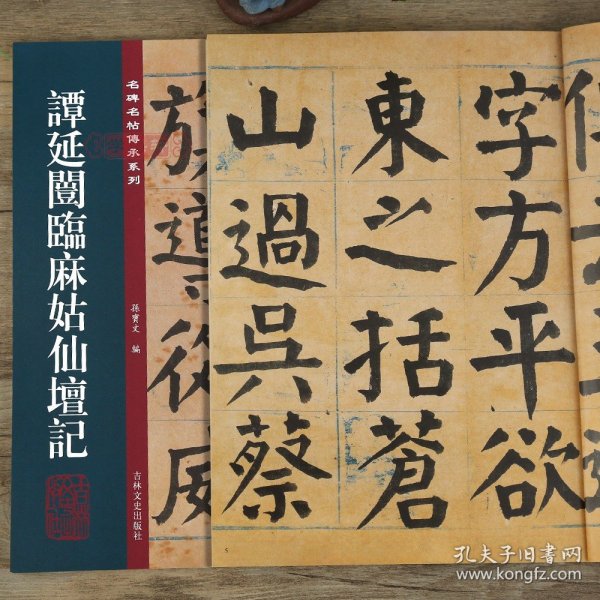 譚延闓臨麻姑仙壇記
名碑名帖傳承系列
孫寶文 編
吉林文史出版社
字方平欲
東之括蒼
山過吳蔡
5
孔夫子旧书网
www.kongfz.com